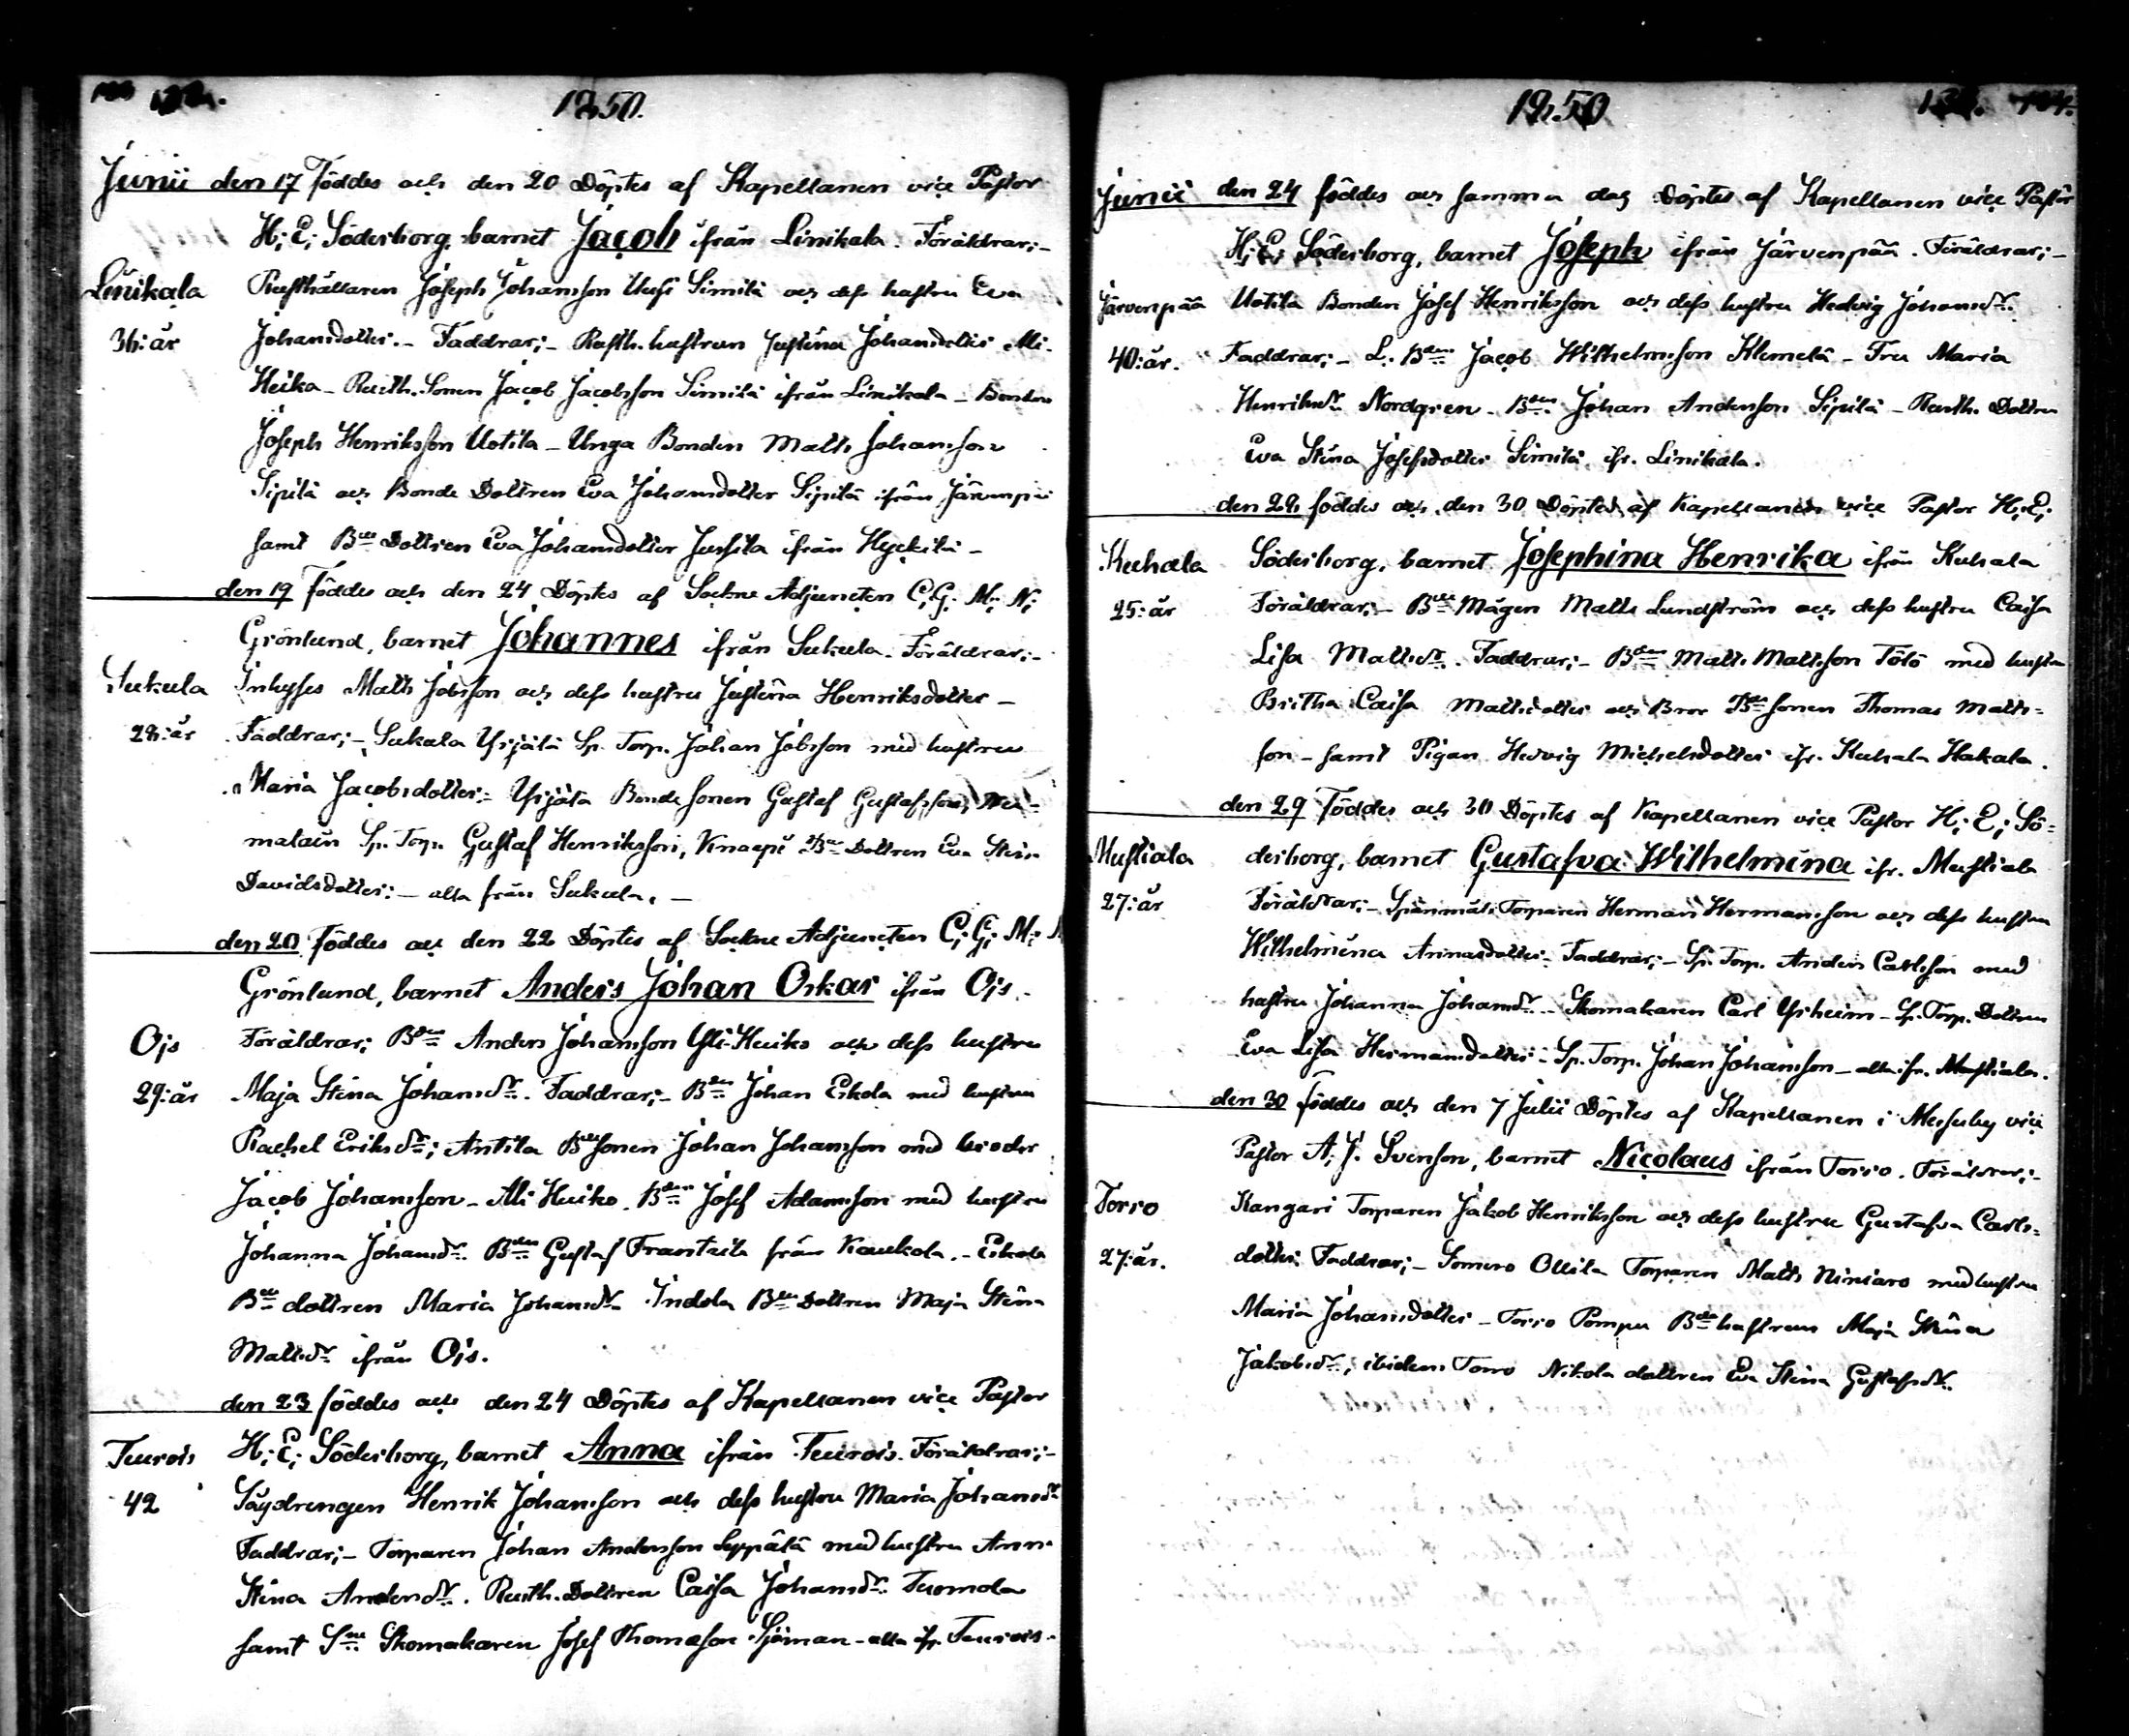 1850.
Junii den 17 Föddes och den 20 Döptes af Kapellanen vice Pastor
H; E; Söderborg, barnet Jacob ifrån Linikala. Föräldrar;-
Linikala Rusthållaren Joseph Johansson Uusi Simila och dess hustru Eva
36: år Johansdotter.- Faddrar;- Rusth. hustrun Justina Johansdotter Ali-
Heika - Rusth. Sonen Jacob Jacobsson Simila ifrån Linikala - Bonden
Joseph Henriksson Uotila - Unga Bonden Matts Johansson
Sipilä och Bonde Dottren Eva Johansdotter Sipilä ifrån Järvenpä
samt Bde Dottren Eva Johansdotter Jussila ifrån
den 19 Föddes och den 24 Döptes af Sockne Adjuncten C; G; M; N;
Grönlund, barnet Johannes ifrån Sukula. Föräldrar;-
Sukula Inhyses Matts Jobsson och dess hustru Justina Henriksdotter -
28: år Faddrar;- Sukula Yrjälä Sp. Torp. Johan Jobsson med hustru
Maria Jacobsdotter;- Yrjälä Bonde sonen Gustaf Gustafsson,
Sp. Torp. Gustaf Henriksson, Knaapi Bde Dottren Eva Stin
Davidsdotter:- alla från Sukula. -
den 20 Föddes och den 22 Döptes af Sockne Adjuncten C; G; M;
Grönlund, barnet Anders Johan Oskar ifrån Ojs.-
Ojs Föräldrar; Bden Anders Johansson Yli-Heiko och dess hustru
29: år Maja Stina Johansdr. Faddrar;- Bden Johan Eskola med hustru
Rachel Eriksdr; Antila Bdesonen Johan Johansson med broder
Jacob Johansson - Ali Heiko. Bden Josef Adamsson med hustru
Johanna Johansdr. Bden Gustaf Frantsila från Kaukola. - Eskola
Bde dottren Maria Johansdr Indola Bde Dottren Maja Stina
Mattsdr ifrån Ojs.
den 23 föddes och den 24 Döptes af Kapellanen vice Pastor
Teurois H; E; Söderborg, barnet Anna ifrån Teurois. Föräldrar;-
42 Henrik Johansson och dess hustru Maria Johansdr
Faddrar;- Torparen Johan Andersson Seppälä med hustru Anna
Stina Andersdr. Rusth. Dottren Caisa Johansdr. Tuomola
samt Skomakaren Josef Thomasson Sjöman - alla ifr. Teurois.
1850
Junii den 24 föddes och samma dag Döptes af Kapellanen vice Pastor
H; E; Söderborg, barnet Joseph ifrån Järvenpää. Föräldrar;-
Järvenpää Uotila Bonden Josef Henriksson och dess hustru Hedvig Johansdr.
40: år. Faddrar;- L. Bden Jacob Wilhelmsson Klemelä - Fru Maria
Henriksdr Nordgren - Bden Johan Andersson Sipilä - Rusth. Dottren
Eva Stina Josefsdotter Simila ifr. Linikala.
den 28 föddes och den 30 Döptes af Kapellanen vice Pastor H; E;
Kuhala Söderborg, barnet Josephina Henrika ifrån Kuhala
25: år Föräldrar;- Bde Mågen Matts Lundström och dess hustru Caisa
Lisa Mattsdr. Faddrar;- Bden Matts Mattsson Tölö med hustru
Britha Caisa Mattsdotter och Bror Bde sonen Thomas Matts=
son - samt Pigan Hedvig Michelsdotter ifr. Kuhala Hakala.
den 29 Föddes och 30 Döptes af Kapellanen vice Pastor H; E; Sö=
Mustiala derborg, barnet Gustafva Wilhelmina ifr. Mustiala
27: år Föräldrar;- Spanmåls Torparen Herman Hermansson och dess hustru
Wilhelmina Annasdotter. Faddrar;- Sp. Torp. Anders Carlsson med
hustru Johanna Johansdr. - Skomakaren Carl - Sp. Torp. Dottren
Eva Lisa Hermansdotter - Sp. Torp. Johan Johansson - alla ifr. Mustiala.
den 30 föddes och den 7 Julii Döptes af Kapellanen i Messuby vice
Pastor A; J. Svenson, barnet Nicolaus ifrån Torro. Föräldrar;-
Torro Kangari Torparen Jakob Henriksson och dess hustru Gustafva Carls=
27: år. dotter. Faddrar;- Somero Ollila Torparen Matts Niniaro med hustru
Maria Johansdotter - Torro Pompu Bde hustrun Maja Stina
Jakobsdr; ibidem Torro Nikola dottren Eva Stina Gustafsdr.